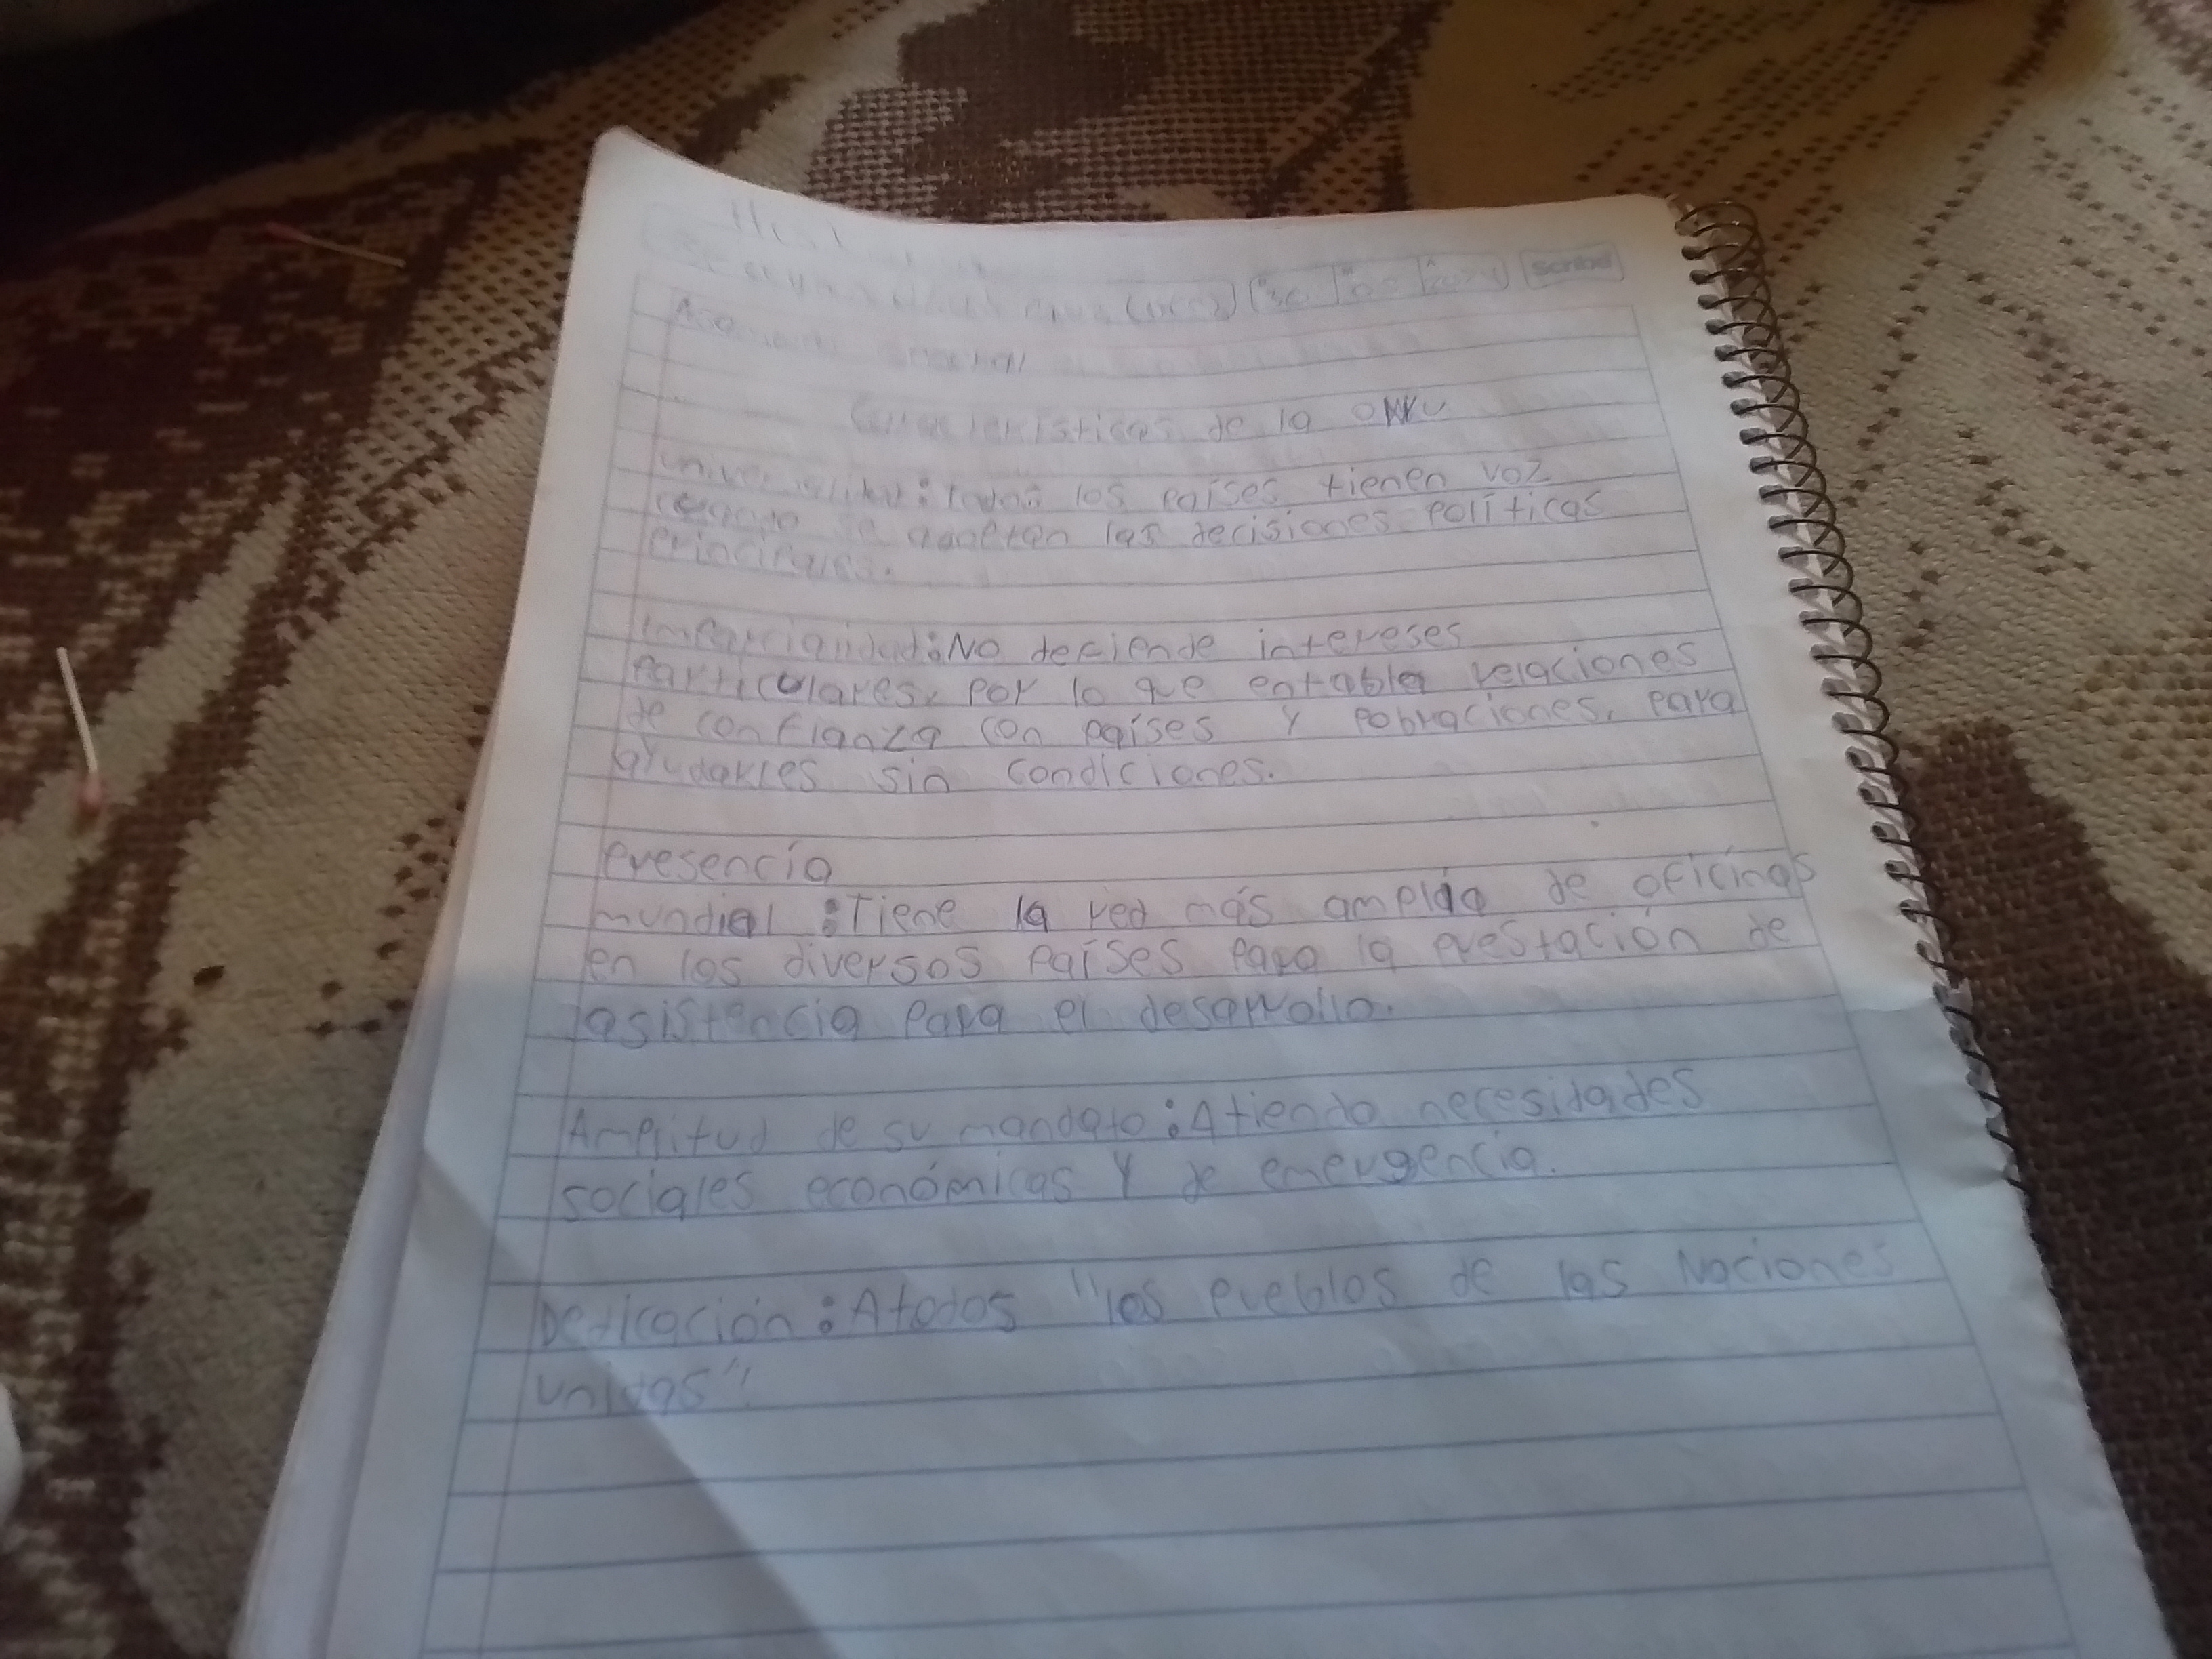 Scribe
Características de la ONU
Universalidad: todos los países tienen voz
cuando se adoptan las decisiones políticas
principales.
Imparcialidad: No defiende intereses
particulares, por lo que entabla relaciones
de confianza con países y pobraciones, para
ayudarles sin condiciones.
Presencia
mundial : Tiene la red más amplia de oficinas
en los diversos países para la prestación de
asistencia para el desarrollo.
Amplitud de su mandato: Atiendo necesidades
sociales económicas y de emergencia.
Dedicación: A todos "los pueblos de las Naciones
Unidas".